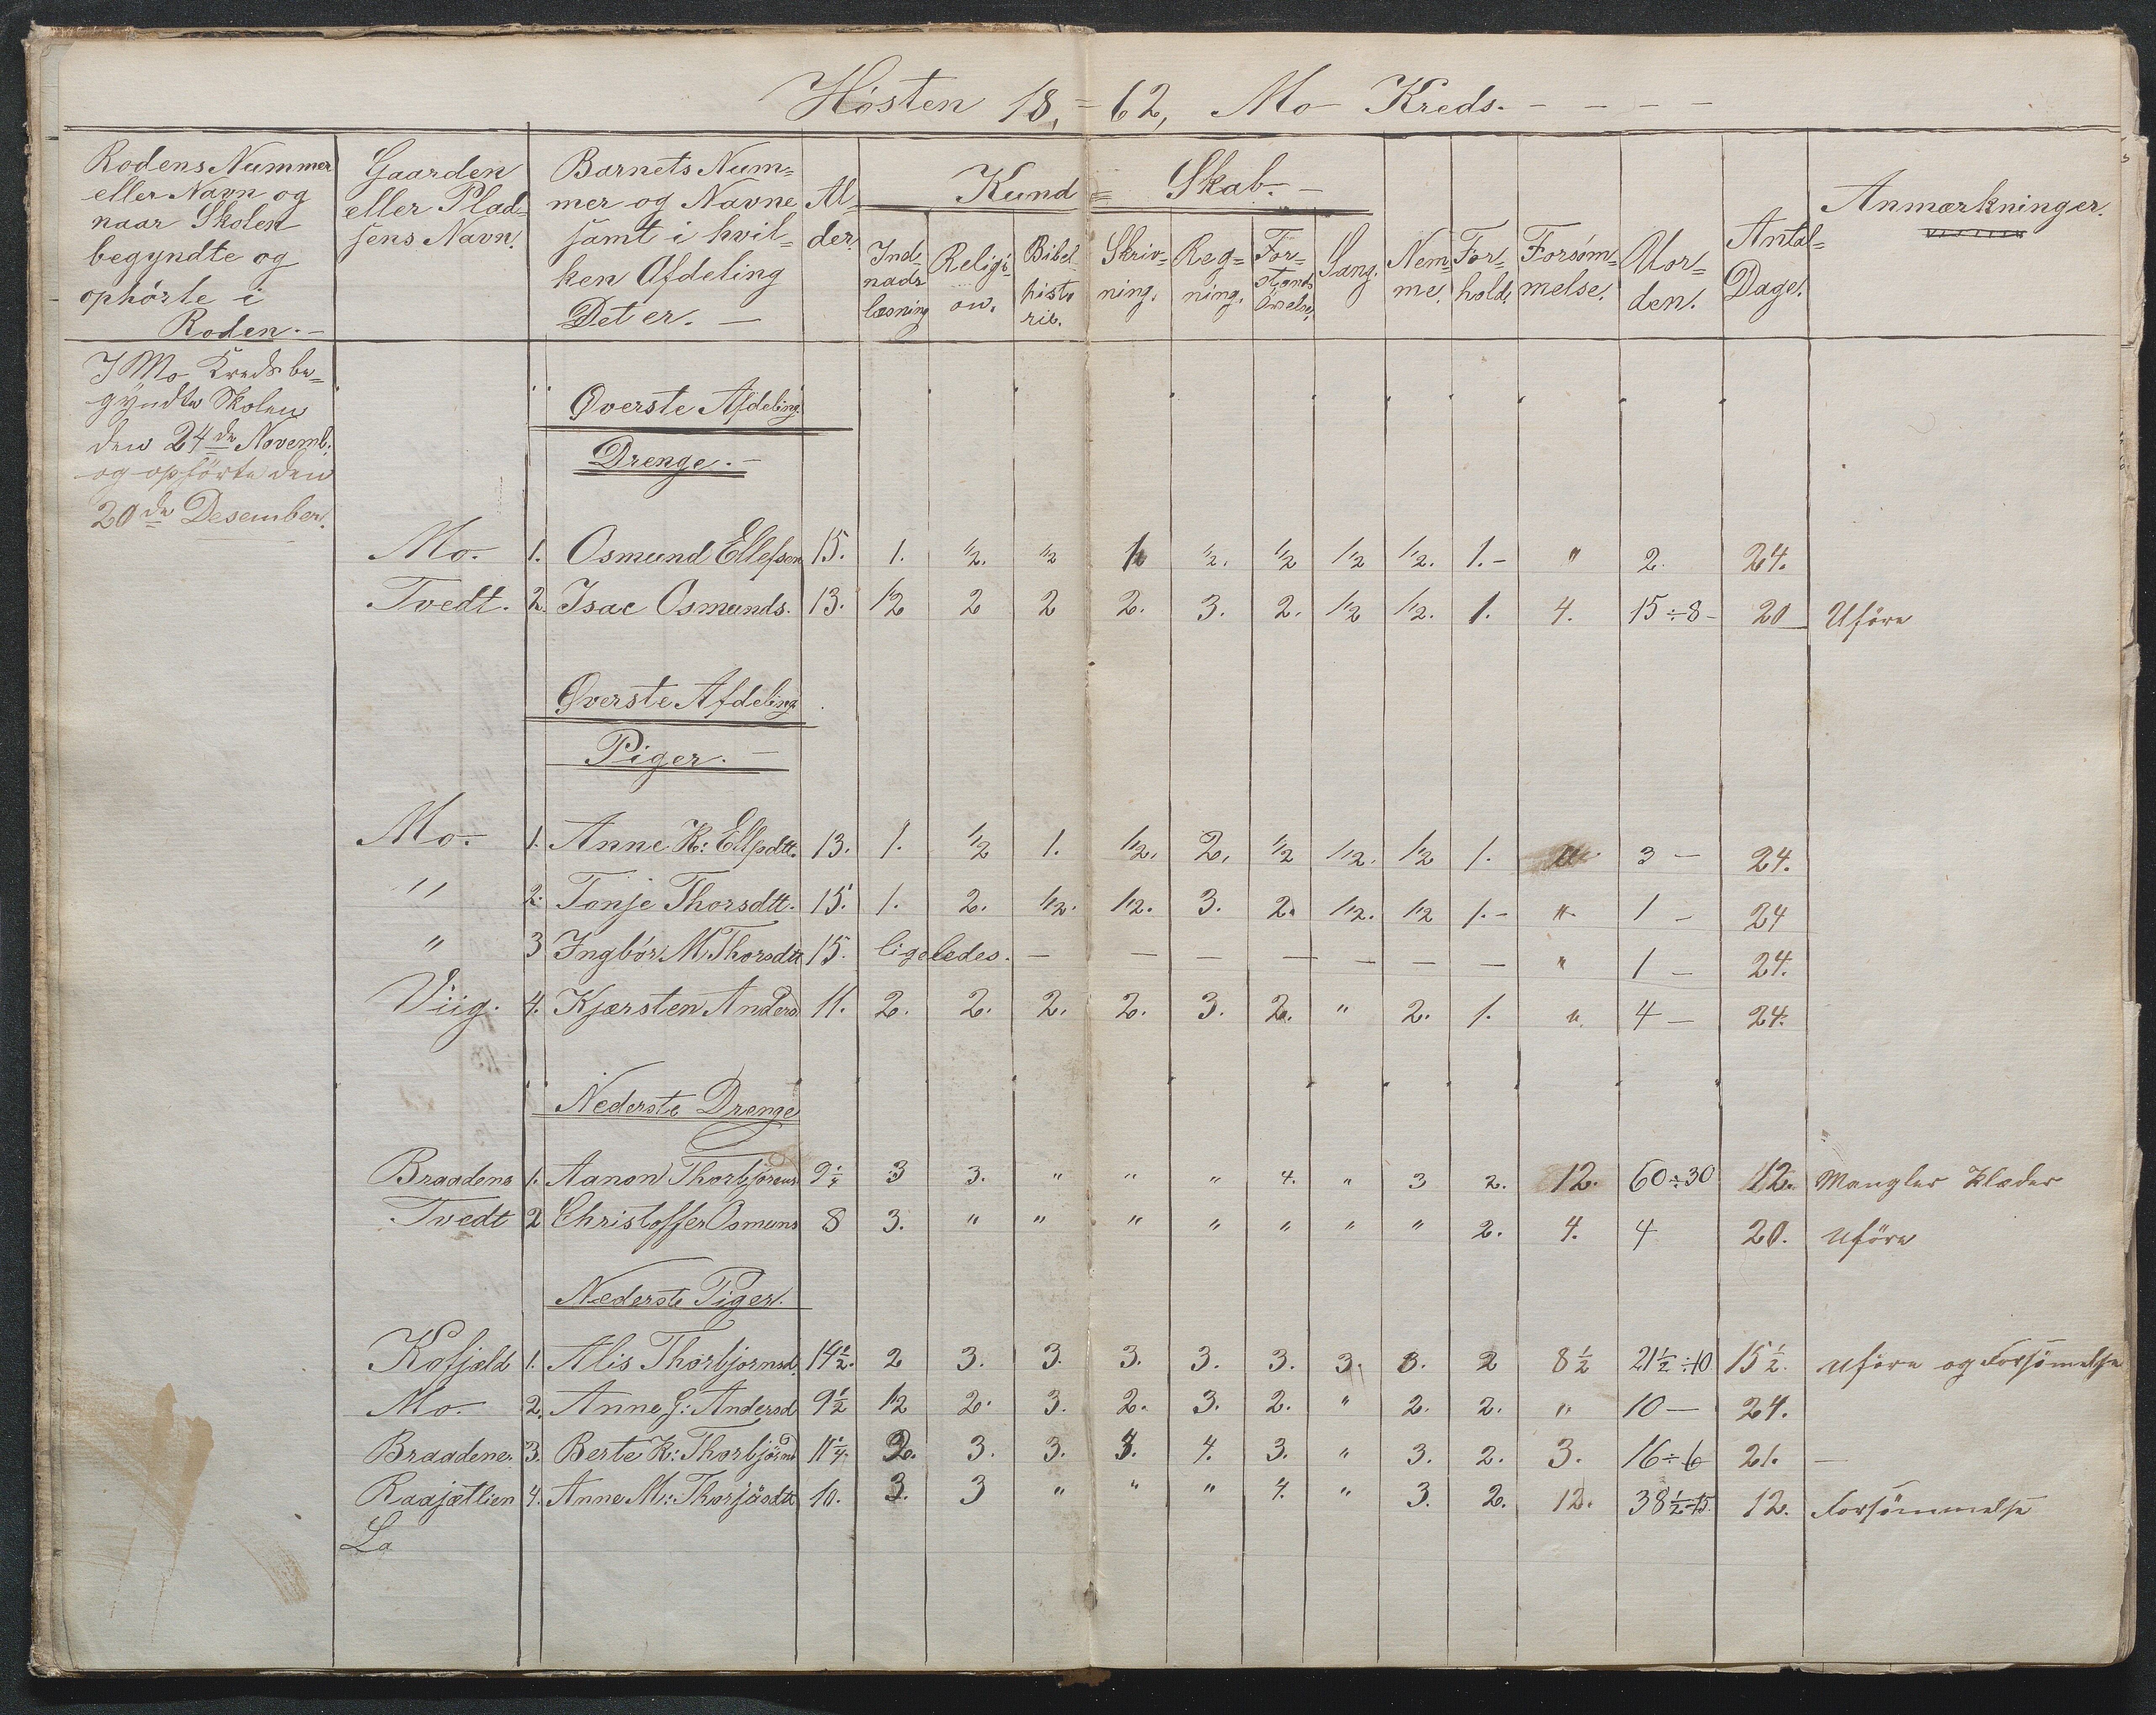 Høsten 18,-62, Mo Kreds.
Rodens Nummer eller Navn og naar Skolen begyndte og ophørte i Roden.
Gaarden eller Pladsens Navn.
Barnets Nummer og Navne samt i hvilken Afdeling Det er.
Alder
Kund=Skab.
Indenadslæsning
Religion.
Bibelhistorie.
Skrivning.
Regning.
Forstandsøvelse.
Sang.
Nemme.
Forhold.
Forsømmelse.
Uorden.
Antal Dage.
Anmærkninger.
I Mo Kreds be=
gyndte Skolen
den 24de Novemb:
og opførte den
20de Desember.
Øverste Afdeling
Drenge.
Mo. 1. Osmund Ellefsen 15. 1. 1/2. 1/2 1/2 1/2. 1/2 1/2 1/2. 1.- " 2. 24.
Tvedt. 2. Isac Osmunds. 13. 1/2 2 2 2. 3. 2. 1/2 1/2. 1. 4. 15÷8- 20 Uføre
Øverste Afdeling
Piger.
Mo. 1. Anne K: Ellfsdtt. 13. 1. 1/2 1. 1/2. 2. 1/2 1/2. 1/2 1. " 3 - 24.
" 2. Tonje Thorsdtt. 15. 1. 2. 1/2. 1/2. 3. 2. 1/2. 1/2 1.- " 1 - 24
" 3 Ingbór M. Thorsdtt 15. ligeledes. - - - - - - - " 1 - 24.
Viig. 4. Kjærsten Anders 11. 2. 2. 2. 2. 3. 2. " 2. 1. " 4 - 24.
Nederste Drenge
Braadene 1. Aanon Thorbjørens 9 1/4 3 3. " " " 4. " 3 2. 12. 60÷30 12. Mangler Klæder
Tvedt 2 Christoffer Osmuns 8 3. " " " " " " " 2. 4. 4 20. Uføre
Nederste Piger.
Kofjæld 1. Alis Thorbjornsd. 14 1/2. 2 3. 3. 3. 3. 3. 3. 3. 2 8 1/2 21 1/2÷10 15 1/2. Uføre og Forsømelse
Mo. 2. Anne G: Andersd 9 1/2 1/2 2. 3. 2. 3. 2. " 2. 2. " 10 - 24.
Braadene. 3. Berte K: Thorbjörnd 11 1/4. 2. 3. 3. 3. 4. 3. " 3. 2. 3. 16÷6 21. -
Raajætlien 4. Anne M: Thorjüsdtt 10. 3. 3 " " " 4. " 3. 2. 12. 38 1/2÷15. 12. Forsömmelse
La